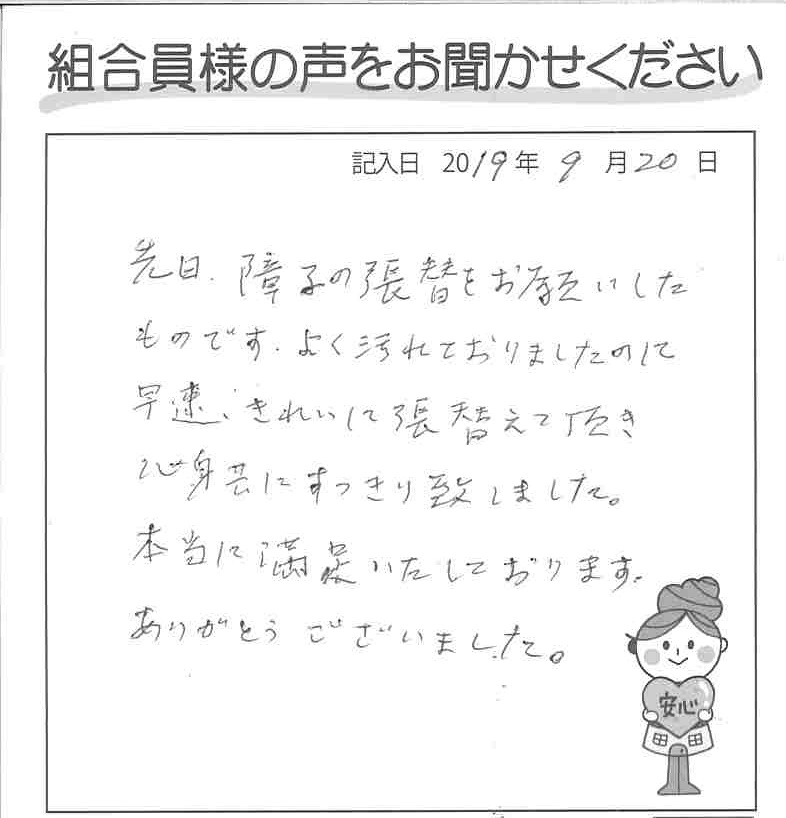 組合員様の声をお聞かせください
記入日 2019年 9月20日
先日、障子の張替をお願いした
ものです。よく汚れておりましたので
早速、きれいに張替えて頂き
心身共にすっきり致しました。
本当に満足いたしております。
ありがとうございました。
安心